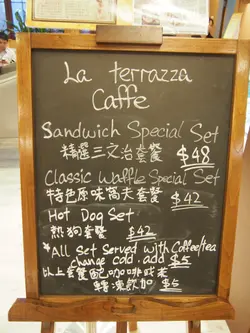 La terrazza
Caffe
Sandwich Special Set
精選三文治套餐 $48
Classic Waffle Special Set
特色原味窩夫套餐 $42
Hot Dog Set
熱狗套餐 $42
*All Set Served with Coffee/tea
change cold add $5
以上套餐配咖啡或茶
轉凍飲加 $5